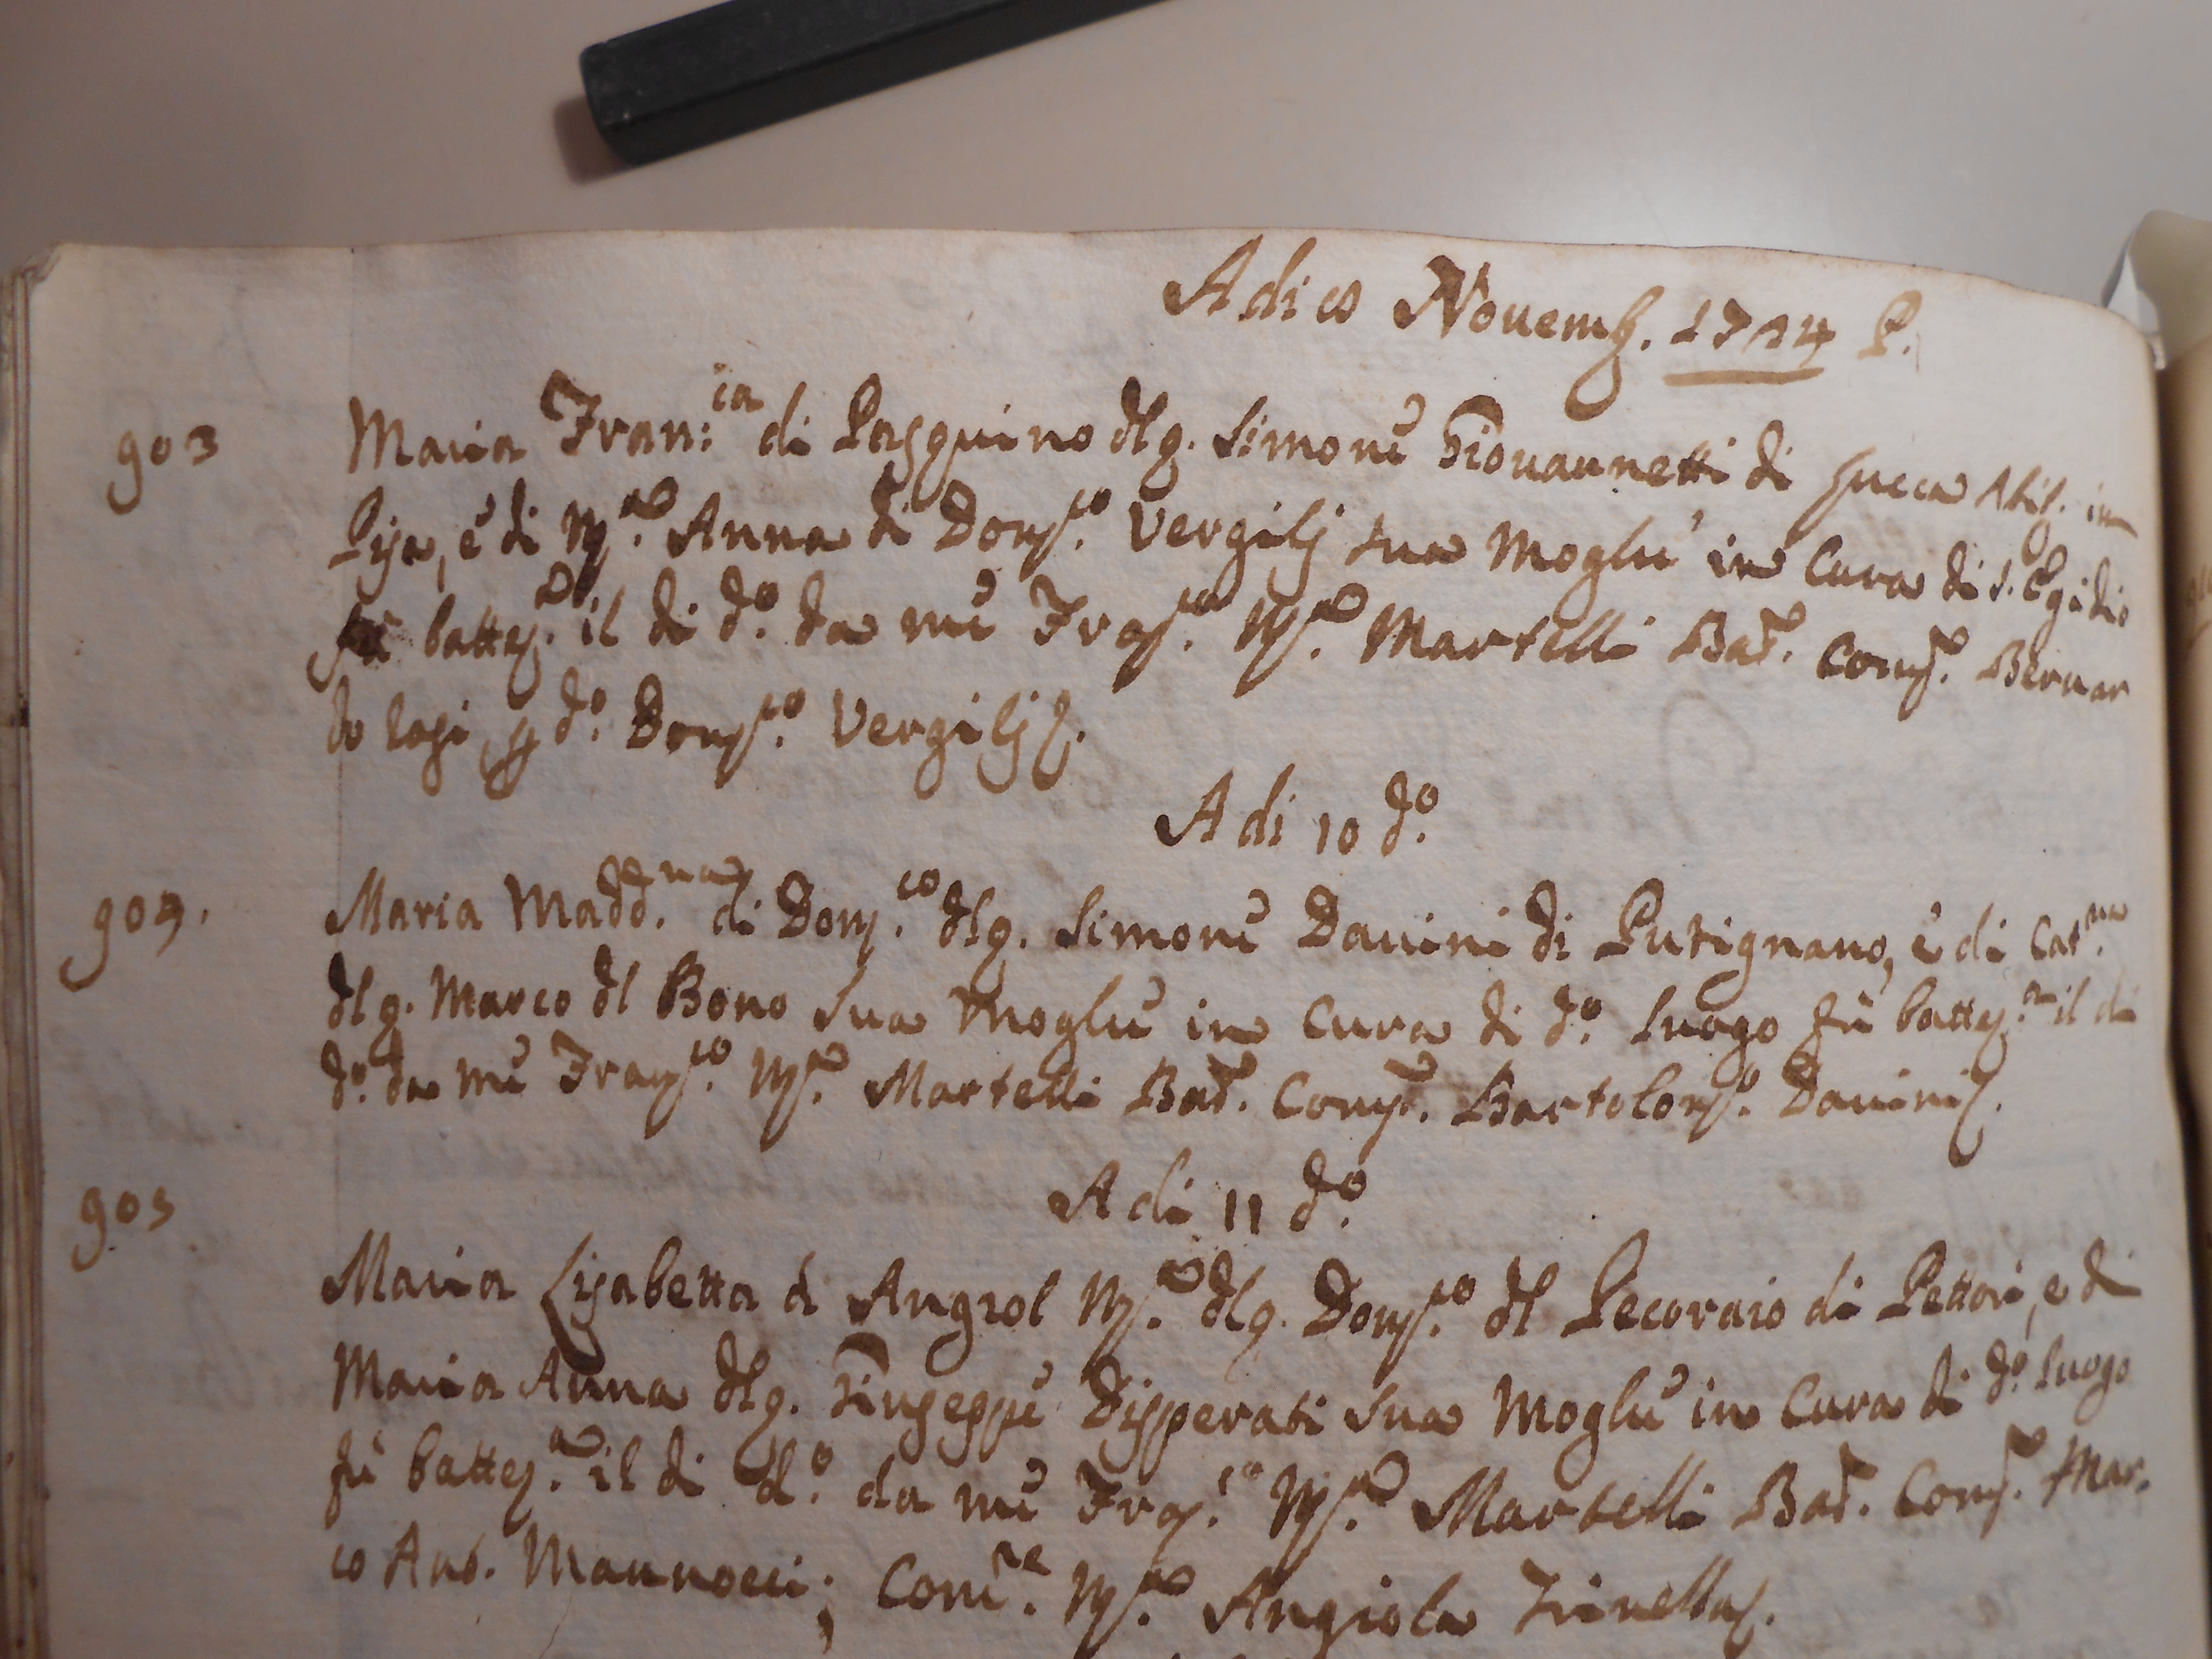 Adi Novemb. 1724 P.
903
Maria Fran:ca di Pasquino dl q. Simone Giovannetti di Lucca Abit. in
Pisa, è di Ma. Anna di Domco. Vergilj sua Moglie in Cura di S. Egidio
fù battez.a il di do. da me Franco. Ma. Martelli Bat. Compe. Bernar
do Lapi p do. Domco. Vergilj
Adi 10 do.
904.
Maria Madd.na di Dom.co dl q. Simone Davini di Putignano, è di Cat.na
dl q. Marco dl Bono sua Moglie in Cura di do. luogo fù battez.a il di
do. da me Franco. Ma. Martelli Bat. Compe. Bartolomo. Davini
905
Adi 11 do.
Maria Lisabetta di Angiol Ma. dl q. Domco. dl Pecoraio di Pettori, e di
Maria Anna dl q. Giuseppe Disperati sua Moglie in Cura di do. luogo
fù battez.a il di do. da me Fran.co Ma. Martelli Bat. Compe. Mar-
co Ant. Mannocci; Come.re Ma. Angiola